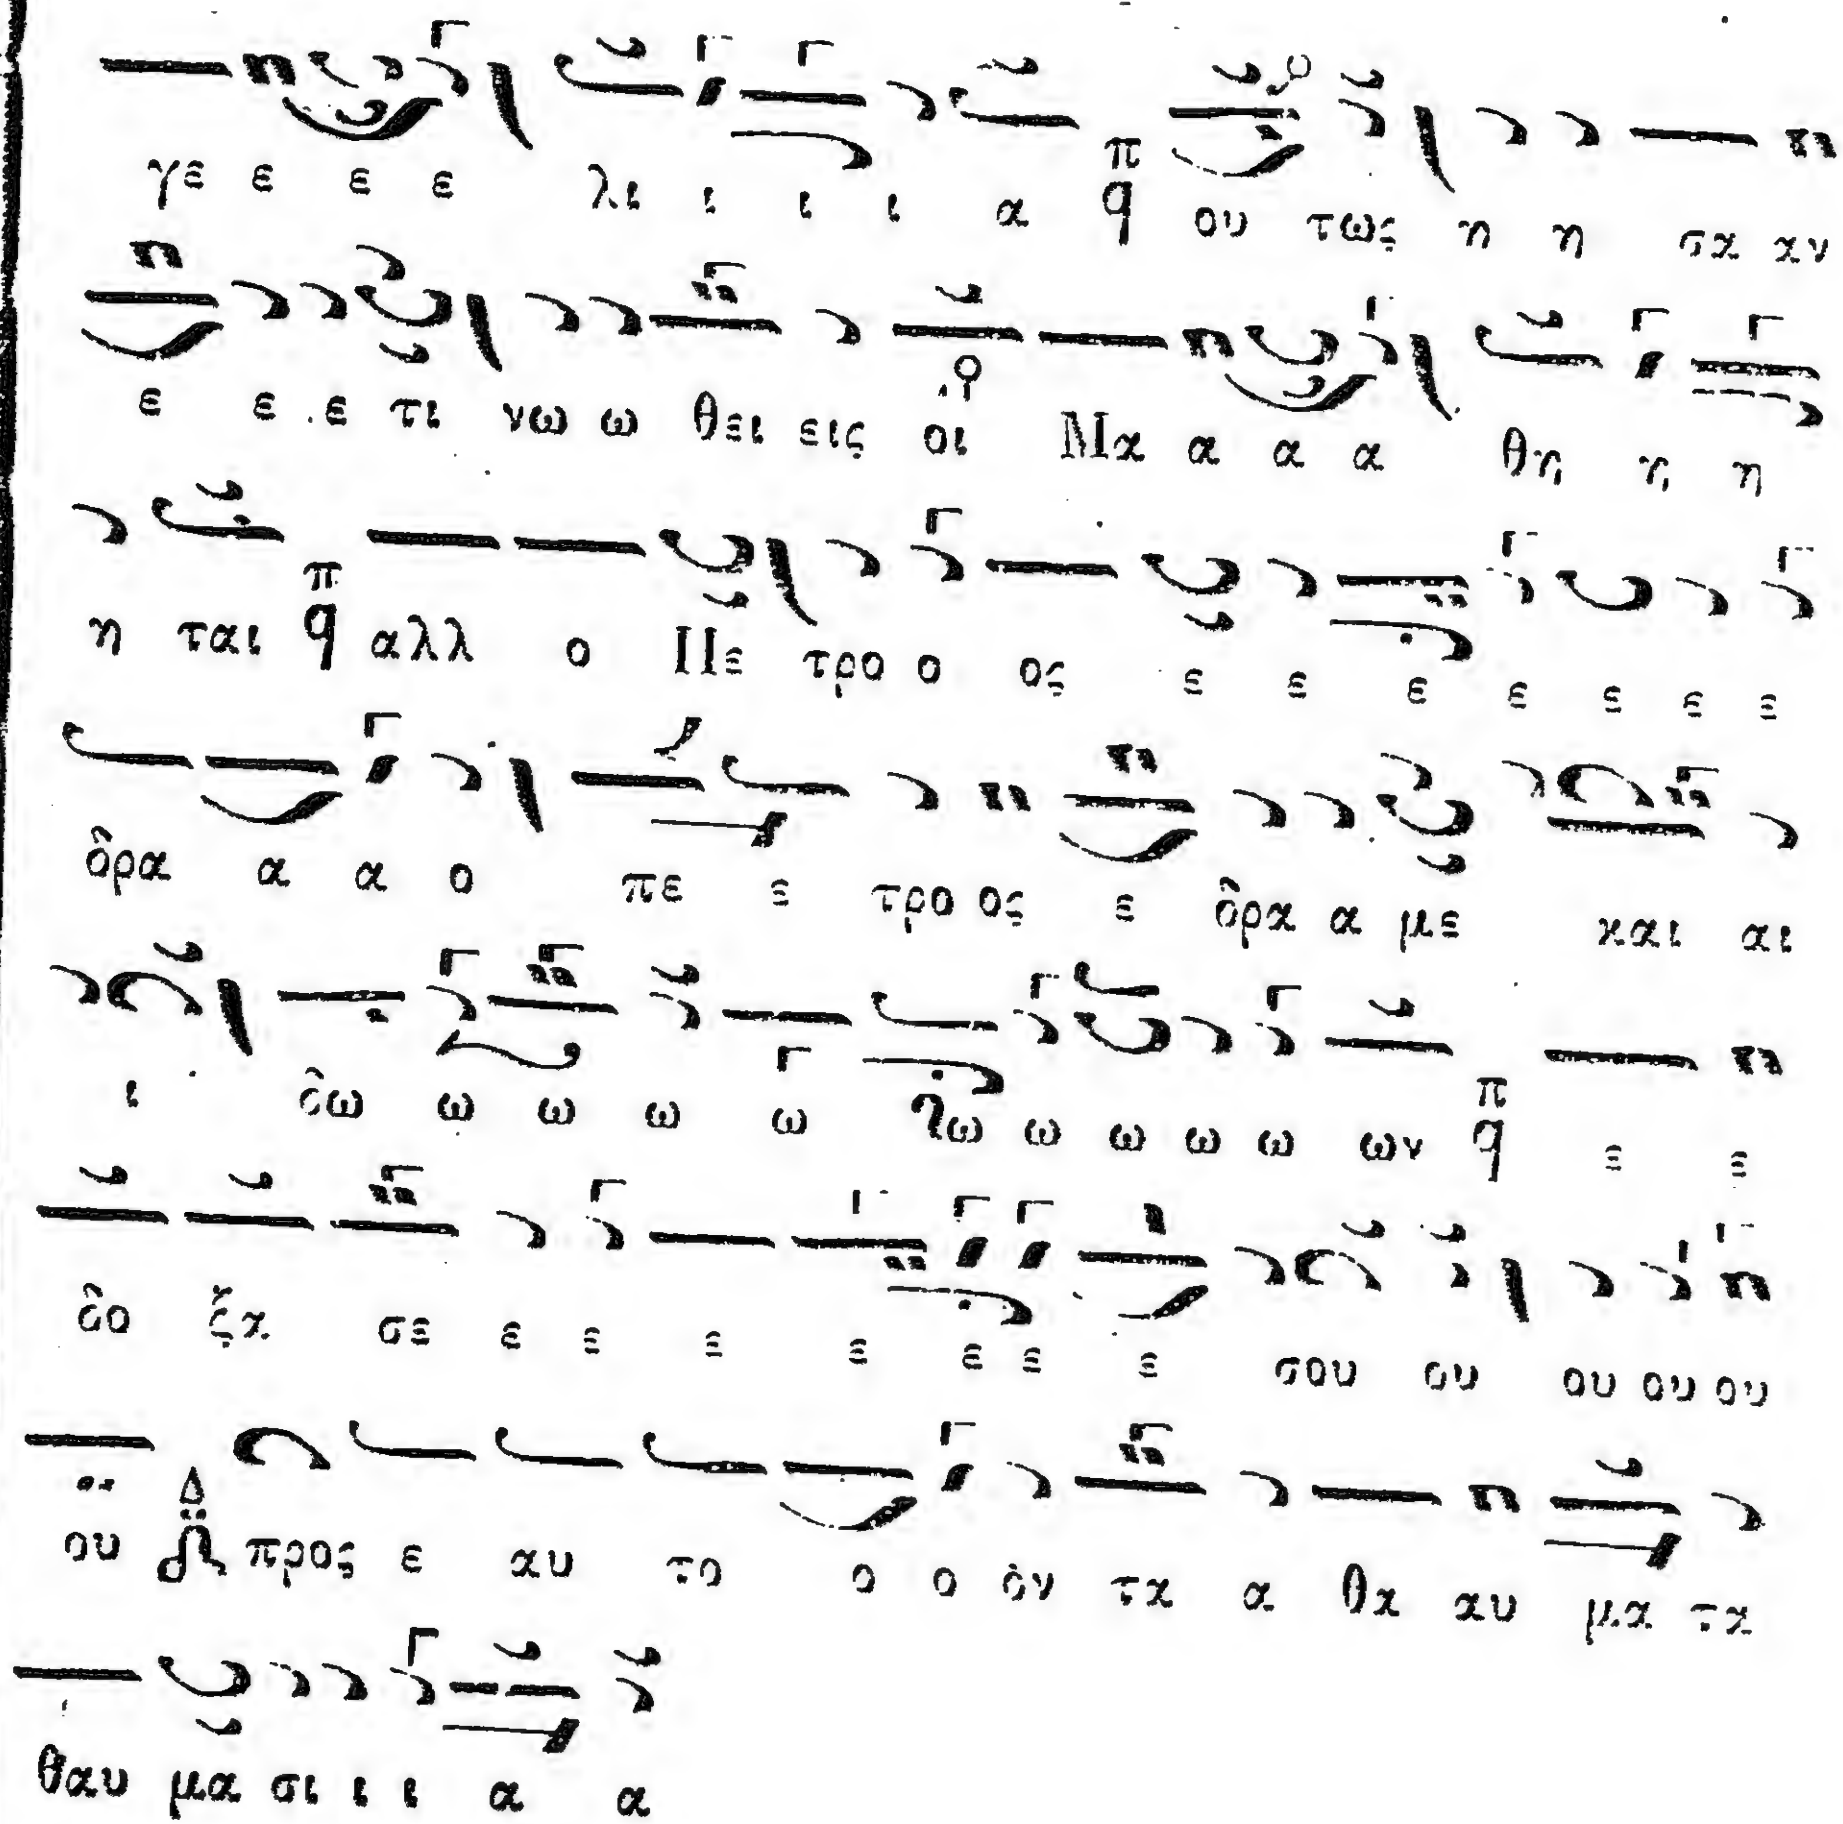 γε ε ε ε λι ι ι ι α π q ου τως η η σα αν
ε ε ε τι νω ω θει εις οι Μα α α α θη η η
η ται π q αλλ ο Πε τρο ο ος ε ε ε ε ε ε ε
δρα α α ο πε ε τρο ος ε δρα α με και αι
ι δω ω ω ω ω ω ω ω ω ω ων π q ε ε
δο ξα σε ε ε ε ε ε ε ε σου ου ου ου ου
ου Δ προς ε αυ το ο ο ον τα α θα αυ μα τα
θαυ μα σι ι ι α α